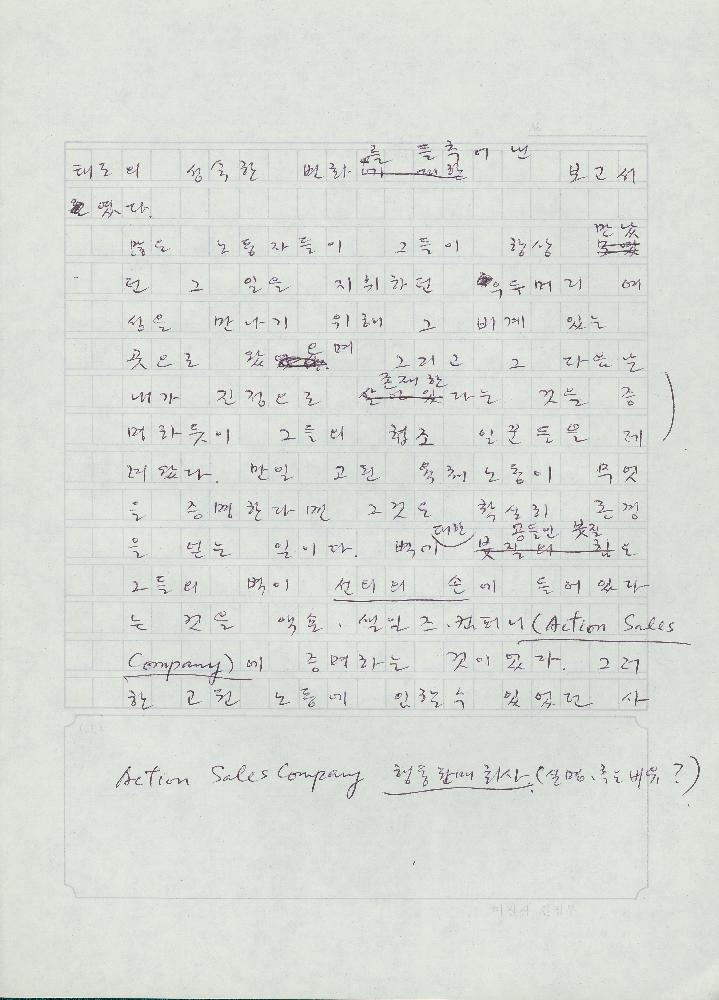 를 들추어 낸
태도의 성숙한 변화 보고서
였다.
많은 노동자들이 그들이 항상 만났
던 그 일을 지휘하던 우두머리 여
성을 만나기 위해 그 비계 있는
곳으로 왔으며 그리고 그 다음날
존재한
내가 진정으로 라는 것을 증
명하듯이 그들의 협조 일꾼들을 데
려왔다. 만일 고된 육체노동이 무엇
을 증명한다면 그것은 확실히 존경
대한 공들인 붓질
을 얻는 일이다. 벽에 붓질의 힘은
그들의 벽이 선티의 손에 들어있다
는 것을 액숀·세일즈·컴퍼니(Action Sales
Company)에 증명하는 것이었다. 그러
한 고된 노동에 인할수 있었던 사
Action Sales Company 행동판매회사.(실명, 혹은 비유?)